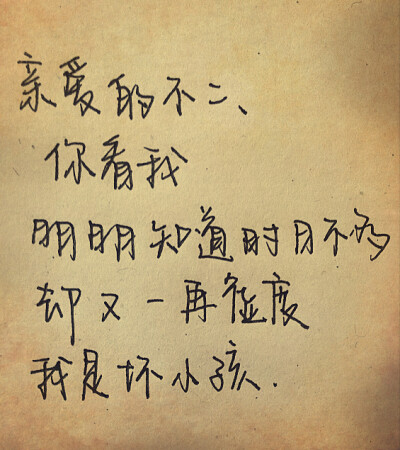 亲爱的不二、
你看我
明明知道时日不多
却又一再虚度
我是坏小孩.